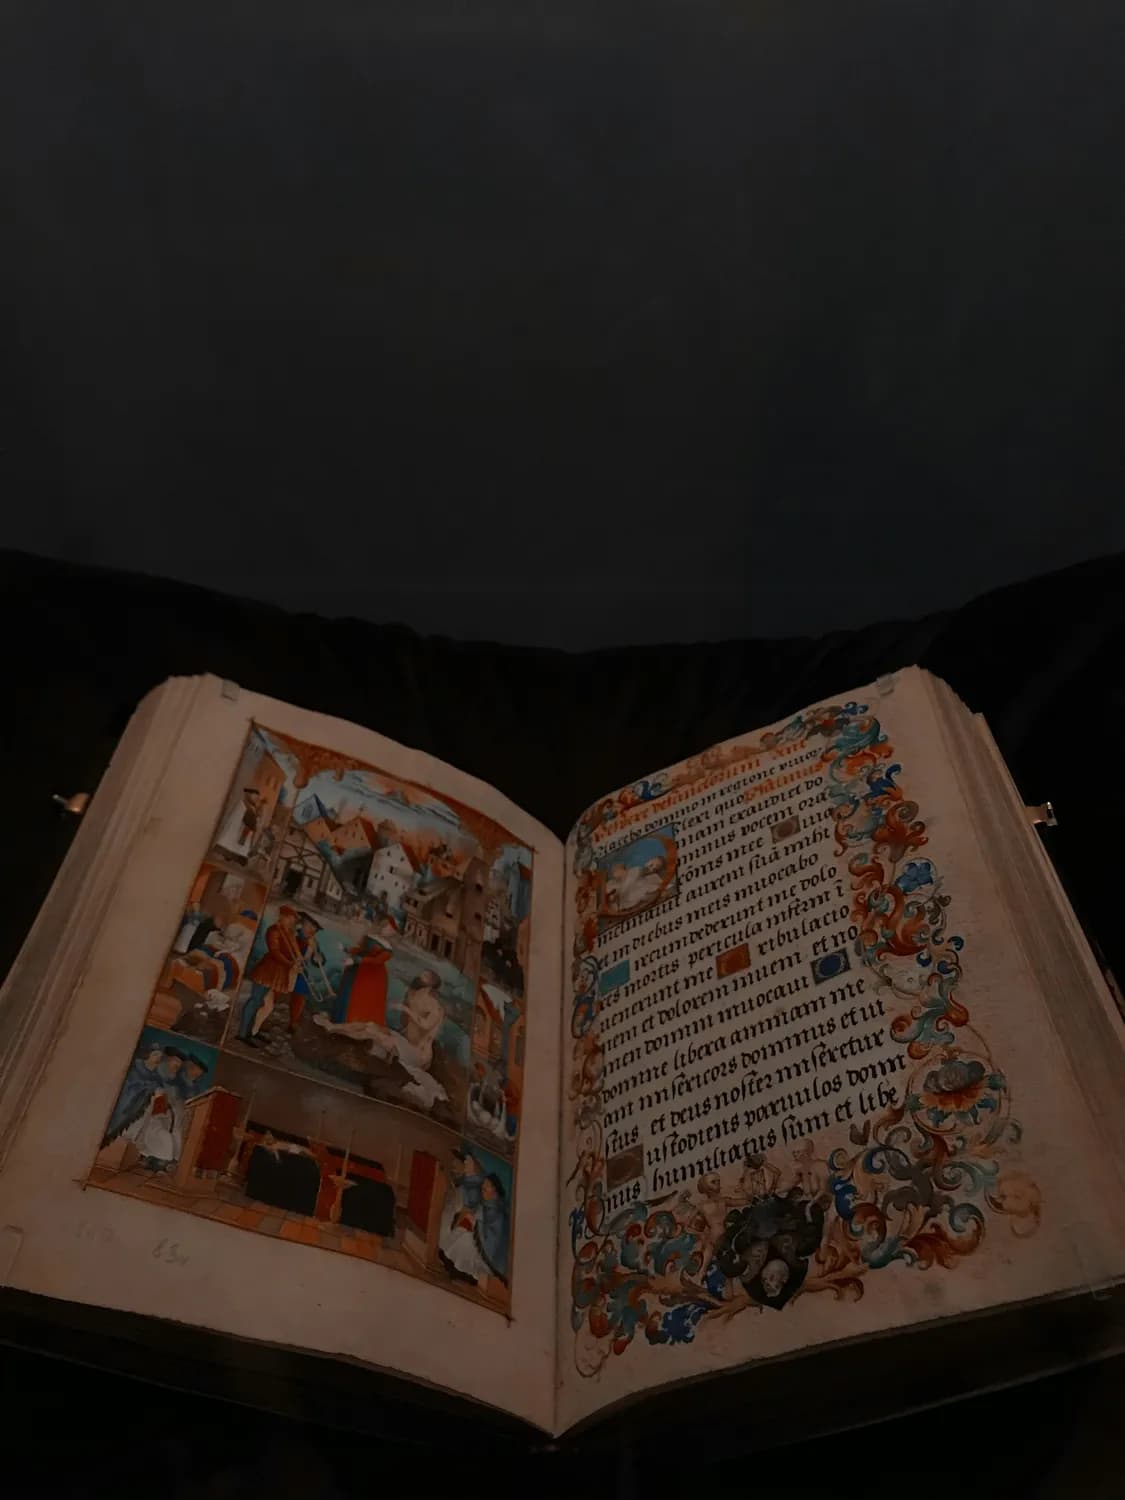 Vespere defunctorum Ant
Placebo domino in regione vivor.
ilexi quo Psalmus
niam exaudiet do
minus vocem ora
cōnis mee Quia
inclinavit aurem suā mihi
et in diebus meis invocabo
ircumdederunt me dolo
res mortis pericula inferni ī
venerunt me ribulacio
nem et dolorem inveni et no
men domini invocavi
domine libera animam me
am misericors dominus et iu
stus et deus noster miseretur
ustodiens parvulos domi
nus humiliatus sum et libe
634